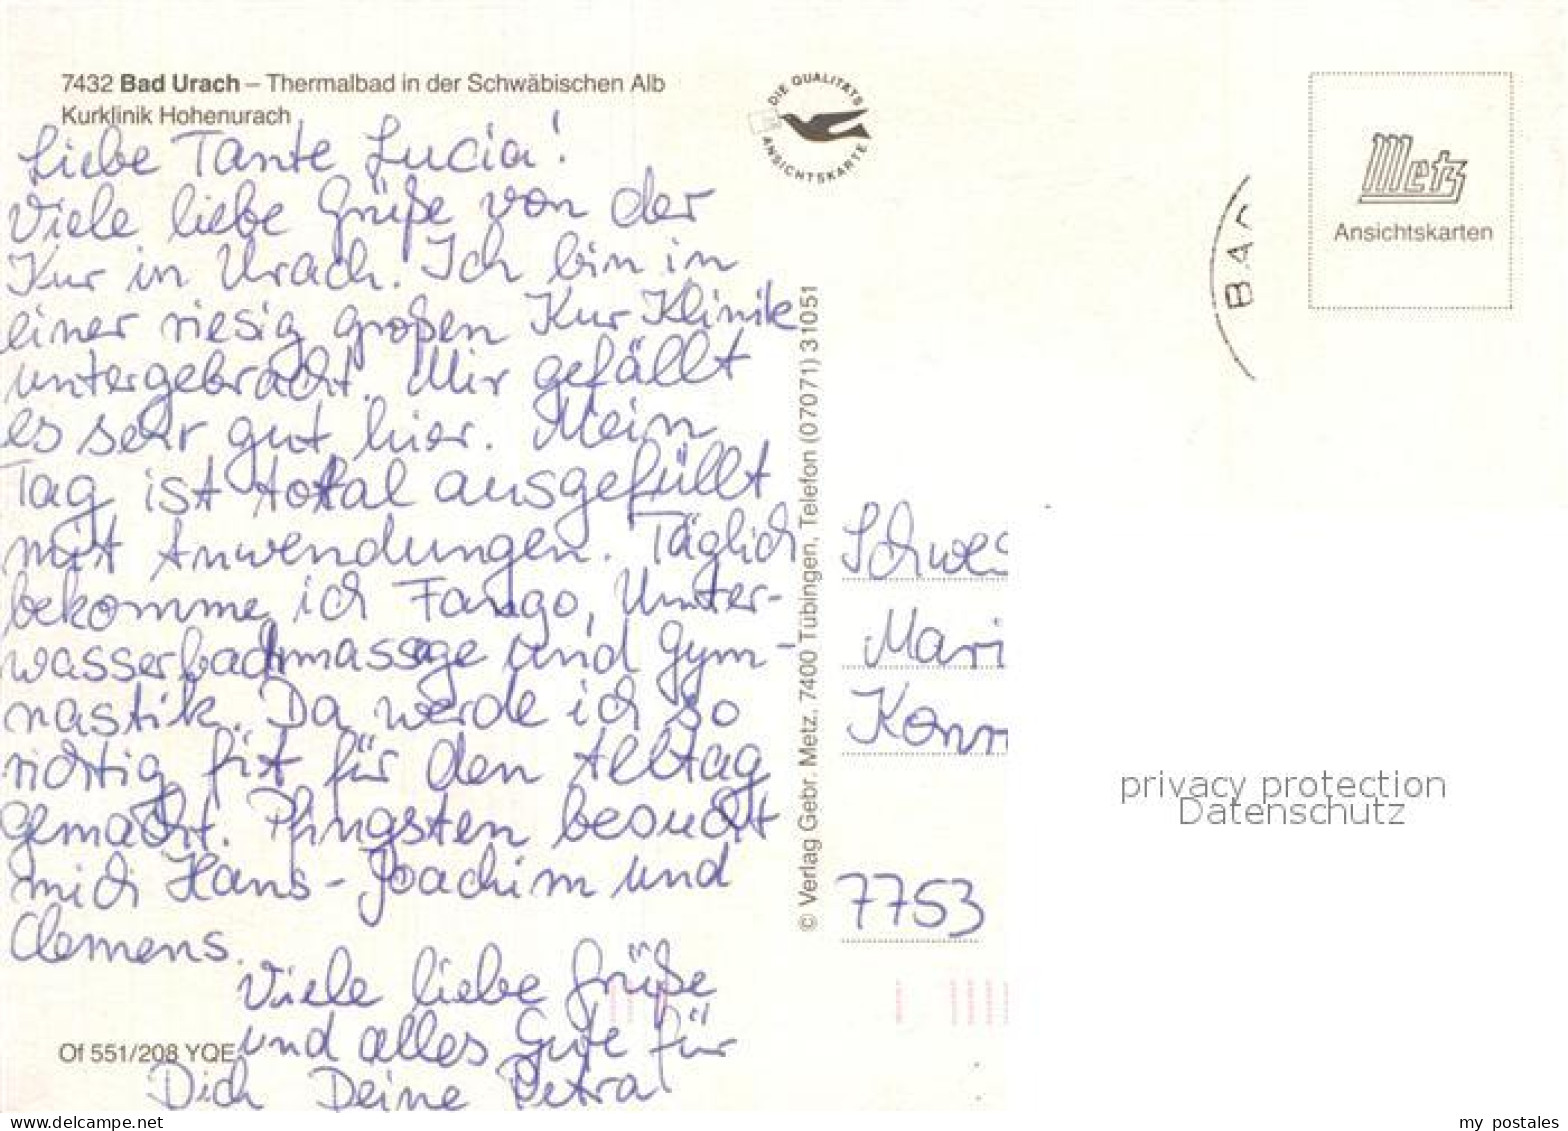 7432 Bad Urach – Thermalbad in der Schwäbischen Alb
Kurklinik Hohenurach
Liebe Tante Lucia!
Viele liebe Grüße von der
Kur in Urach. Ich bin in
einer riesig großen Kur Klinik
untergebracht. Mir gefällt
es sehr gut hier. Mein
Tag ist total ausgefüllt
mit Anwendungen. Täglich
bekomme ich Fango, Unter-
wassermassage und Gym-
nastik. Da werde ich so
richtig fit für den Alltag
gemacht. Pfingsten besucht
mich Hans-Joachim und
Clemens.
Viele liebe Grüße
und alles Gute für
Dich Deine Petra
Of 551/208 YQE
DIE QUALITÄTS
ANSICHTSKARTE
© Verlag Gebr. Metz, 7400 Tübingen, Telefon (07071) 31051
Metz
Ansichtskarten
BAD
Schwes
Mari
Konn
7753
privacy protection
Datenschutz
delcampe.net
my_postales